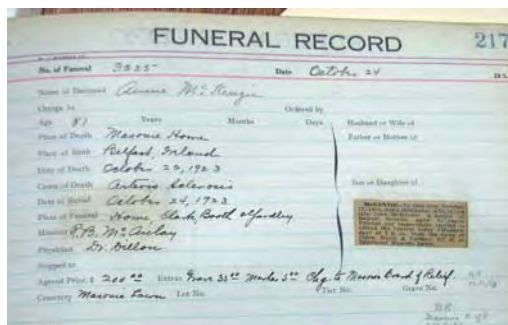 FUNERAL RECORD 217
No. of Funeral 3225 Date October 24
Name of Deceased Annie McKenzie
Charge to Ordered by
Age 81 Years Months Days Husband or Wife of
Place of Death Masonic Home Father or Mother of
Place of Birth Belfast, Ireland
Date of Death October 22, 1923
Cause of Death Arterio Sclerosis Son or Daughter of
Date of Burial October 24, 1923
Place of Funeral Home, Clark Booth & Yardley
Minister R.B. McAulay
Physician Dr. Dillon
Shipped to
Agreed Price, $ 200 00 Extras Grave 35 00 Marker 5 00 Chg. to Masonic Board of Relief
Cemetery Masonic Lawn Lot No. Tier No. Grave No.